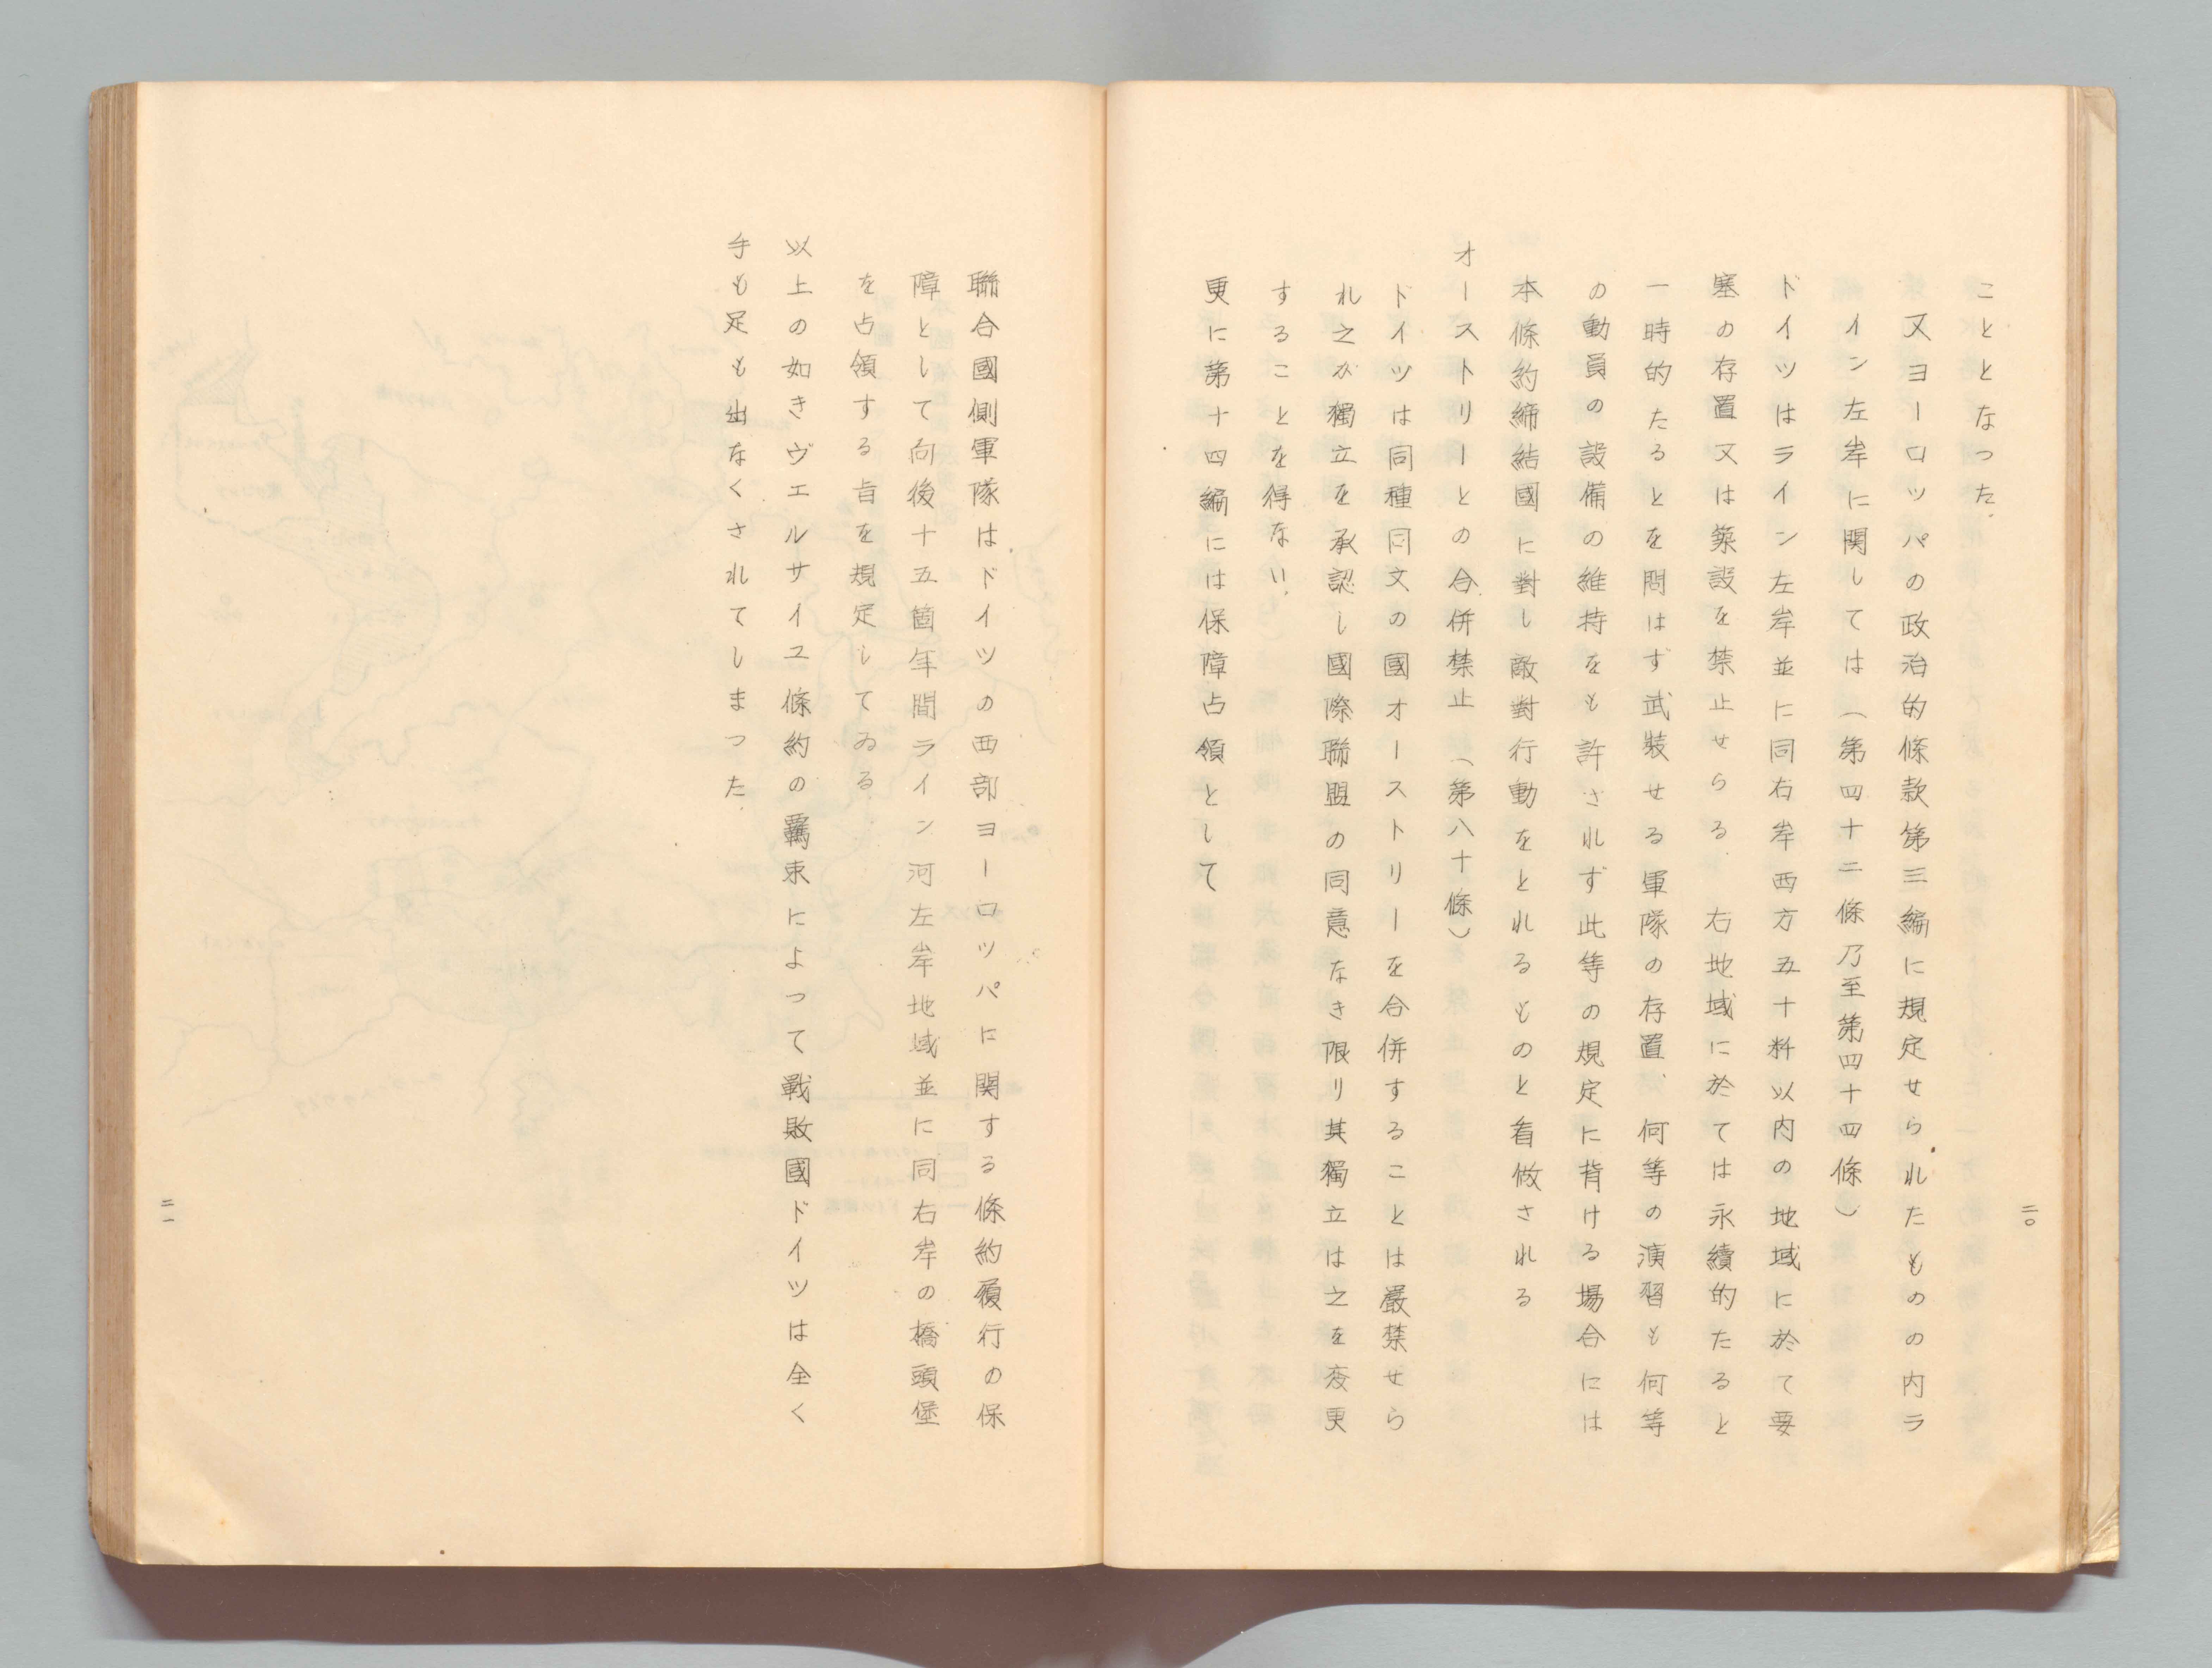 こととなった.
又ヨーロッパの政治的條款第三編に規定せられたものの内ラ
イン左岸に関しては(第四十二條乃至第四十四條)
ドイツはライン左岸並に同右岸西方五十粁以内の地域に於て要
塞の存置又は築設を禁止せらる. 右地域に於ては永續的たると
一時的たるとを問はず武裝せる軍隊の存置、何等の演習も何等
の動員の設備の維持をも許されず此等の規定に背ける場合には
本條約締結國に對し敵對行動をとれるものと看做される
オーストリーとの合併禁止(第八十條)
ドイツは同種同文の國オーストリーを合併することは嚴禁せら
れ之が獨立を承認し國際聯盟の同意なき限り其獨立は之を変更
することを得ない.
更に第十四編には保障占領として
二〇
聯合國側軍隊はドイツの西部ヨーロッパに関する條約履行の保
障として向後十五箇年間ライン河左岸地域並に同右岸の橋頭堡
を占領する旨を規定してゐる.
以上の如きヴエルサイユ條約の羈束によって戰敗國ドイツは全く
手も足も出なくされてしまった.
二一